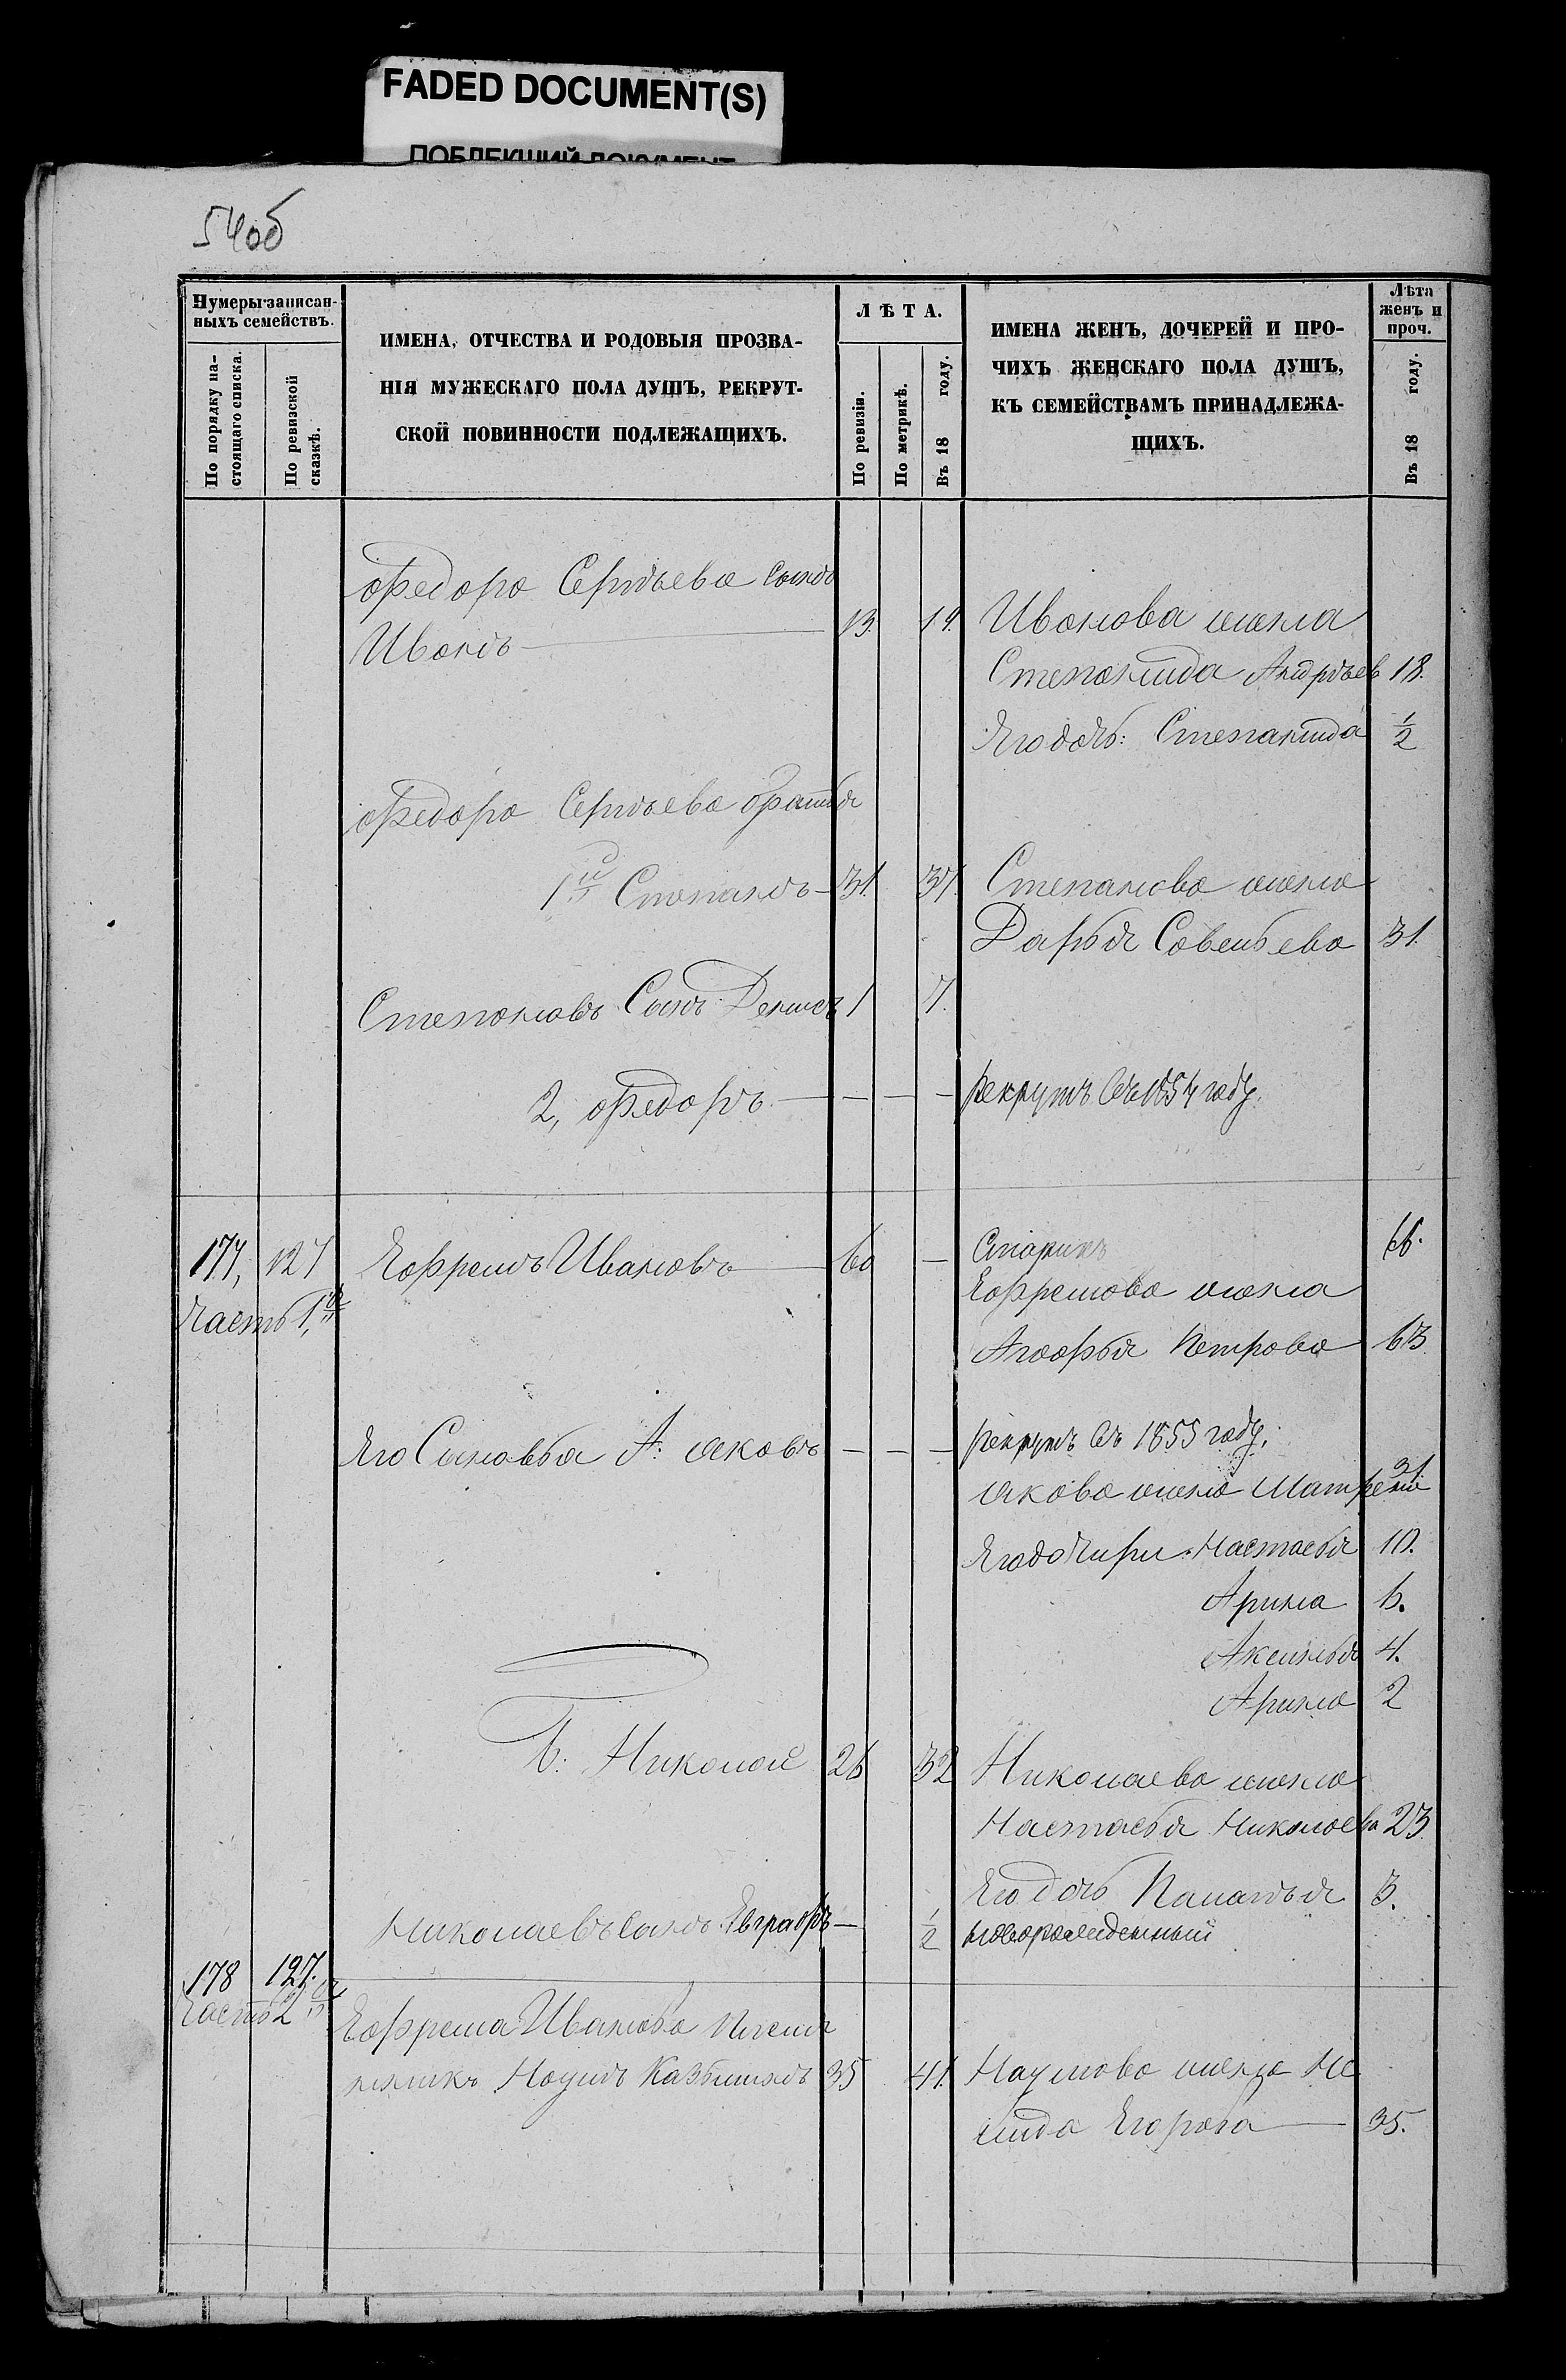 FADED DOCUMENT(S)
ПОБЛЕКШИЙ ДОКУМЕНТ
54об
Нумеры записан-
ныхъ семействъ.
По порядку на-
стоящаго списка.
По ревизской
сказкѣ.
ИМЕНА, ОТЧЕСТВА И РОДОВЫЯ ПРОЗВА-
НІЯ МУЖЕСКАГО ПОЛА ДУШЪ, РЕКРУТ-
СКОЙ ПОВИННОСТИ ПОДЛЕЖАЩИХЪ.
ЛѢТА.
По ревизіи.
По метрикѣ.
Въ 18 году.
ИМЕНА ЖЕНЪ, ДОЧЕРЕЙ И ПРО-
ЧИХЪ ЖЕНСКАГО ПОЛА ДУШЪ,
КЪ СЕМЕЙСТВАМЪ ПРИНАДЛЕЖА-
ЩИХЪ.
Лѣта
женъ и
проч.
Въ 18 году.
Федора Сергѣева сынъ
Иванъ 13. 19. Иванова жена
Степанида Андрѣев 18.
Его дочь: Степанида ½
Федора Сергѣева братья
1й Степанъ 31. 37. Степанова жена
Дарья Савельева 31.
Степановъ Сынъ Денисъ 1 7.
2, Федоръ — — — рекрутъ въ 1854 году.
177, 127 Ефремъ Ивановъ 60 — Старикъ 66.
Часть 1я
Ефремова жена
Агафья Петрова 63.
Его Сыновья А: Яковъ — — — рекрутъ въ 1855 году.
Якова жена Матрена 31.
Его дочери: Настасья 10.
Арина 6.
Аксинья 4.
Арина 2
Б: Николай 26 32 Николаева жена
Настасья Николаева 23.
Его дочь Палагѣя 3.
Николаевъ сынъ Евграфъ — ½ новорожденный
178 127.
Часть 2я
Ефрема Иванова племя
нникъ Наумъ Казьминъ 35 41. Наумова жена Не
лида Егорова 35.